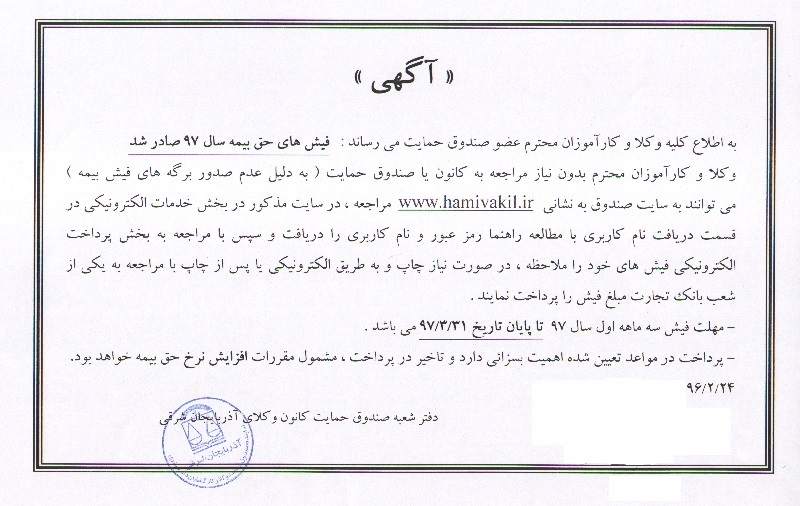 « آگهی »
به اطلاع کلیه وکلا و کارآموزان محترم عضو صندوق حمایت می رساند : فیش های حق بیمه سال ۹۷ صادر شد
وکلا و کارآموزان محترم بدون نیاز مراجعه به کانون یا صندوق حمایت ( به دلیل عدم صدور برگه های فیش بیمه )
می توانند به سایت صندوق به نشانی www.hamivakil.ir مراجعه ، در سایت مذکور در بخش خدمات الکترونیکی در
قسمت دریافت نام کاربری با مطالعه راهنما رمز عبور و نام کاربری را دریافت و سپس با مراجعه به بخش پرداخت
الکترونیکی فیش های خود را ملاحظه ، در صورت نیاز چاپ و به طریق الکترونیکی یا پس از چاپ با مراجعه به یکی از
شعب بانک تجارت مبلغ فیش را پرداخت نمایند .
– مهلت فیش سه ماهه اول سال ۹۷ تا پایان تاریخ ۹۷/۳/۳۱ می باشد .
– پرداخت در مواعد تعیین شده اهمیت بسزانی دارد و تاخیر در پرداخت ، مشمول مقررات افزایش نرخ حق بیمه خواهد بود.
۹۶/۲/۲۴
دفتر شعبه صندوق حمایت کانون وکلای آذربایجان شرقی
آذربایجان شرقی